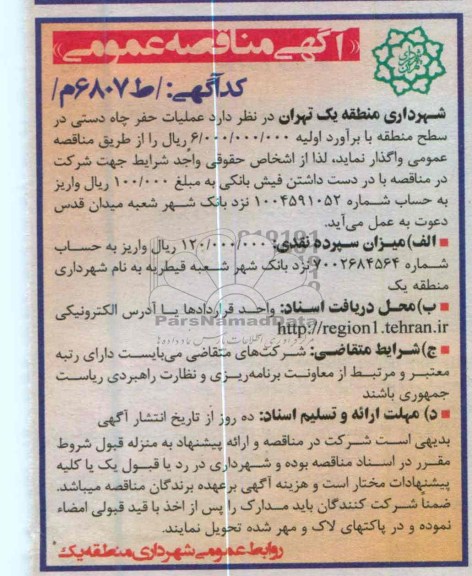 «آگهی مناقصه عمومی»
کدآگهی: /ط۶۸۰۷م/
شهرداری منطقه یک تهران در نظر دارد عملیات حفر چاه دستی در
سطح منطقه با برآورد اولیه ۶/۰۰۰/۰۰۰/۰۰۰ ریال را از طریق مناقصه
عمومی واگذار نماید، لذا از اشخاص حقوقی واجد شرایط جهت شرکت
در مناقصه با در دست داشتن فیش بانکی به مبلغ ۱۰۰/۰۰۰ ریال واریز
به حساب شماره ۱۰۰۴۵۹۱۰۵۲ نزد بانک شهر شعبه میدان قدس
دعوت به عمل می‌آید.
■ الف) میزان سپرده نقدی: ۱۲۰/۰۰۰/۰۰۰ ریال واریز به حساب
شماره ۷۰۰۲۶۸۴۵۶۴ نزد بانک شهر شعبه قیطریه به نام شهرداری
منطقه یک
■ ب) محل دریافت اسناد: واحد قراردادها یا آدرس الکترونیکی
http://region1.tehran.ir
ParsNamadData
■ ج) شرایط متقاضی: شرکت‌های متقاضی می‌بایست دارای رتبه
معتبر و مرتبط از معاونت برنامه‌ریزی و نظارت راهبردی ریاست
جمهوری باشند
■ د) مهلت ارائه و تسلیم اسناد: ده روز از تاریخ انتشار آگهی
بدیهی است شرکت در مناقصه و ارائه پیشنهاد به منزله قبول شروط
مقرر در اسناد مناقصه بوده و شهرداری در رد یا قبول یک یا کلیه
پیشنهادات مختار است و هزینه آگهی برعهده برندگان مناقصه میباشد.
ضمناً شرکت کنندگان باید مدارک را پس از اخذ با قید قبولی امضاء
نموده و در پاکتهای لاک و مهر شده تحویل نمایند.
روابط عمومی شهرداری منطقه یک